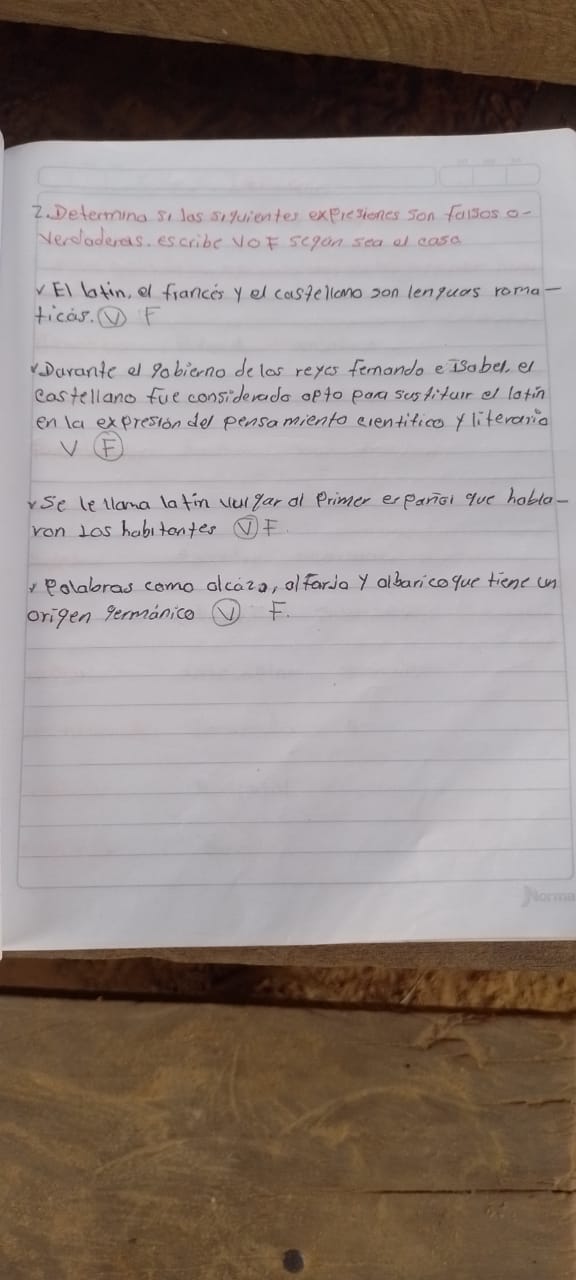 2. Determina si las siguientes expresiones son falsos o-
Verdaderas. escribe V O F según sea el caso
✓ El latín, el francés y el castellano son lenguas roma-
ticas. V F
✓ Durante el gobierno de los reyes Fernando e isabel, el
castellano fue considerado apto para sustituir el latín
en la expresión del pensamiento científico y literario
V F
✓ Se le llama latín vulgar al Primer español que habla-
ron Los habitantes V F
✓ Palabras como alcázo, alfarja y albaricoque tiene un
origen germánico V F.
Norma